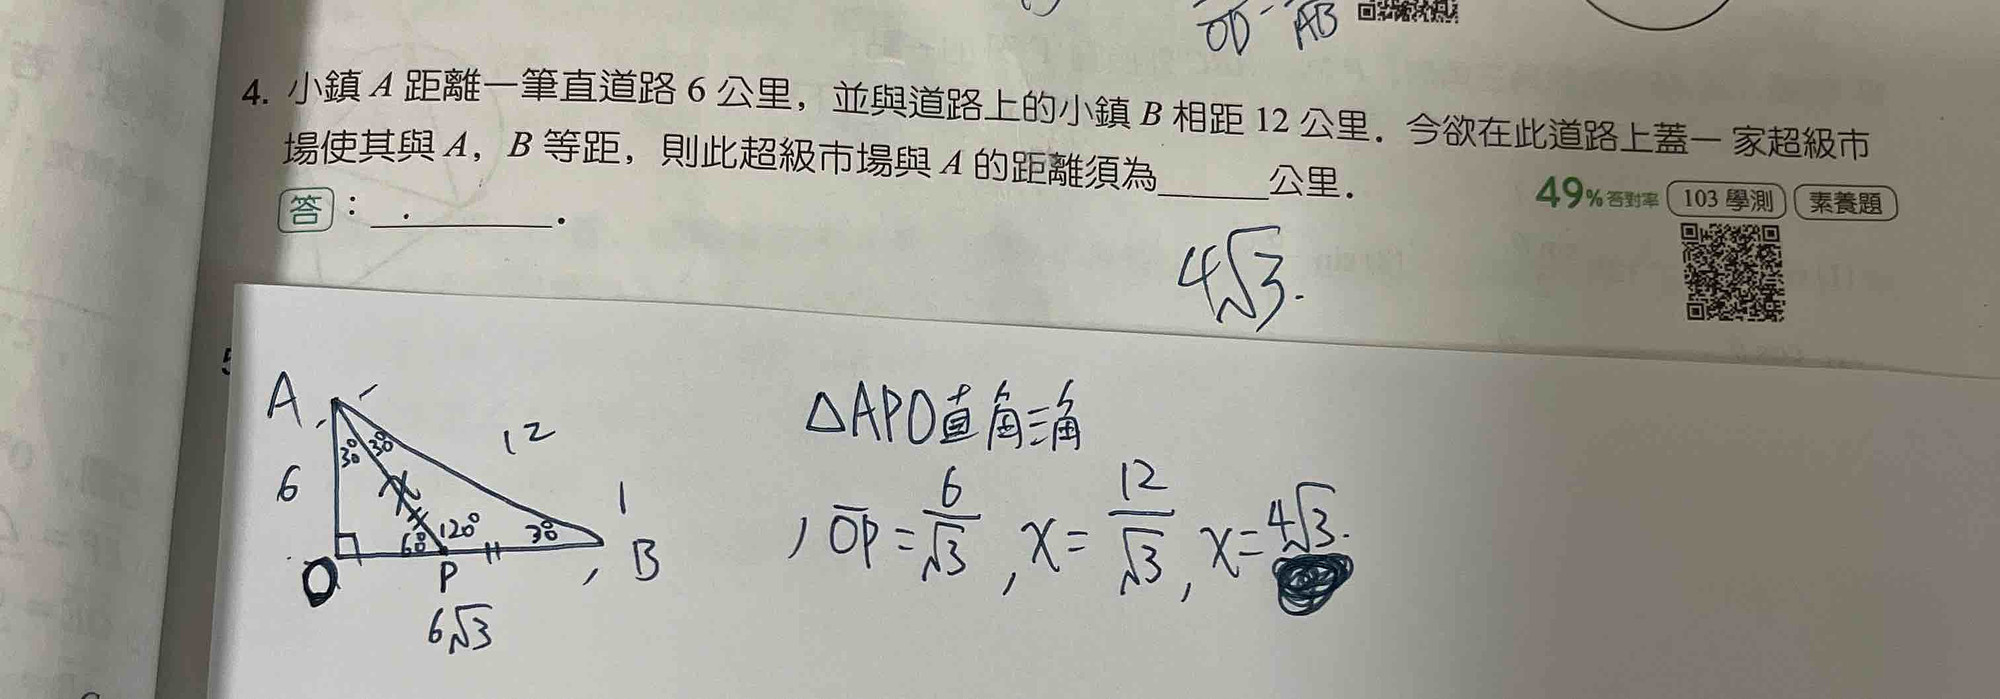 OD AB
4. 小鎮 A 距離一筆直道路 6 公里，並與道路上的小鎮 B 相距 12 公里．今欲在此道路上蓋一 家超級市
場使其與 A，B 等距，則此超級市場與 A 的距離須為______公里．
49%答對率 103 學測 素養題
答：______．
4√3.
5
A
12
30° 30°
6
x
△APO直角三角
120°
60°
30°
O
P
B
6√3
OP = 6/√3 , x = 12/√3 , x = 4√3.